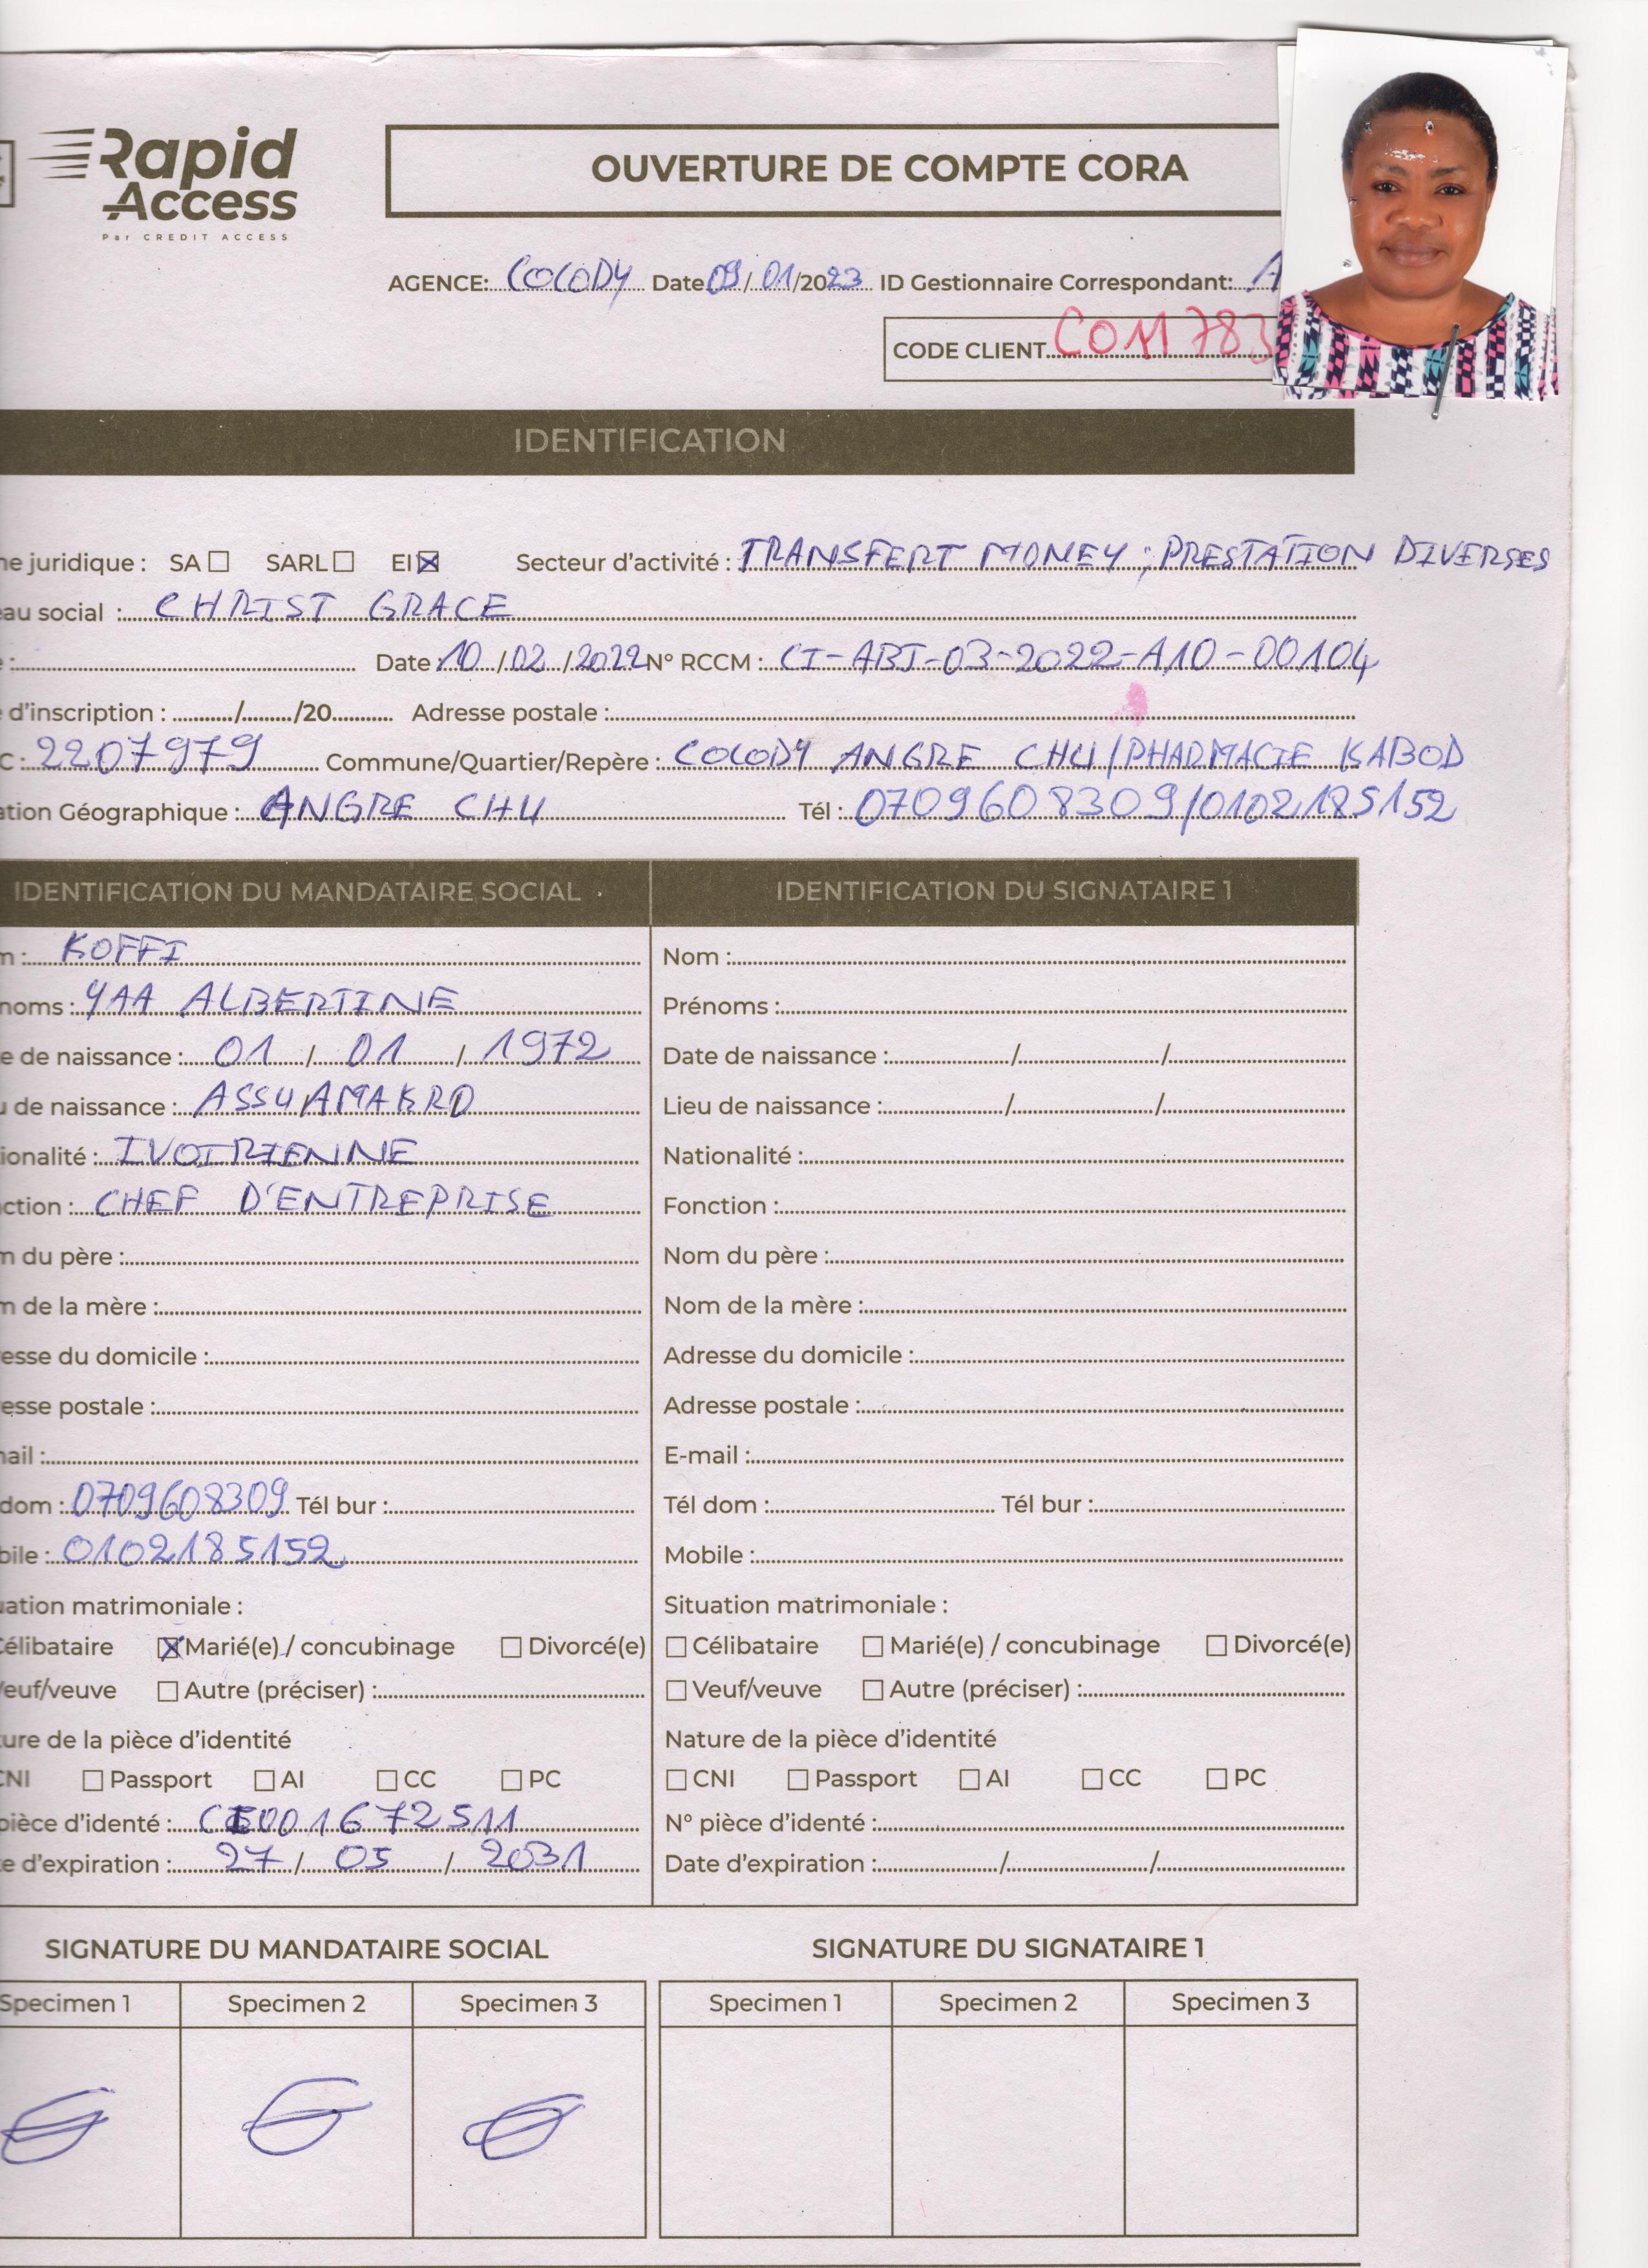 Rapid
Access
Par CREDIT ACCESS
OUVERTURE DE COMPTE CORA
AGENCE: COCODY Date 09/01/2023 ID Gestionnaire Correspondant: A
CODE CLIENT COM783
IDENTIFICATION
ne juridique : SA SARL EI Secteur d'activité : TRANSFERT MONEY ; PRESTATION DIVERSES
eau social : CHRIST GRACE
: Date : 10 / 02 / 2022 N° RCCM : CI-ABJ-03-2022-A10-00104
d'inscription : / /20 Adresse postale :
C : 2207979 Commune/Quartier/Repère : COCODY ANGRE CHU/PHARMACIE KABOD
ation Géographique : ANGRE CHU Tél : 0709608309/0102185152
IDENTIFICATION DU MANDATAIRE SOCIAL IDENTIFICATION DU SIGNATAIRE 1
m : KOFFI Nom :
noms : YAA ALBERTINE Prénoms :
e de naissance : 01 / 01 / 1972 Date de naissance : / /
u de naissance : ASSUAMAKRO Lieu de naissance : / /
ionalité : IVOIRIENNE Nationalité :
ction : CHEF D'ENTREPRISE Fonction :
m du père : Nom du père :
m de la mère : Nom de la mère :
esse du domicile : Adresse du domicile :
esse postale : Adresse postale :
ail : E-mail :
dom : 0709608309 Tél bur : Tél dom : Tél bur :
bile : 0102185152 Mobile :
uation matrimoniale : Situation matrimoniale :
Célibataire Marié(e) / concubinage Divorcé(e) Célibataire Marié(e) / concubinage Divorcé(e)
Veuf/veuve Autre (préciser) : Veuf/veuve Autre (préciser) :
ure de la pièce d'identité Nature de la pièce d'identité
CNI Passport AI CC PC CNI Passport AI CC PC
pièce d'identé : CI001672511 N° pièce d'identé :
e d'expiration : 27 / 05 / 2031 Date d'expiration : / /
SIGNATURE DU MANDATAIRE SOCIAL SIGNATURE DU SIGNATAIRE 1
Specimen 1 Specimen 2 Specimen 3 Specimen 1 Specimen 2 Specimen 3